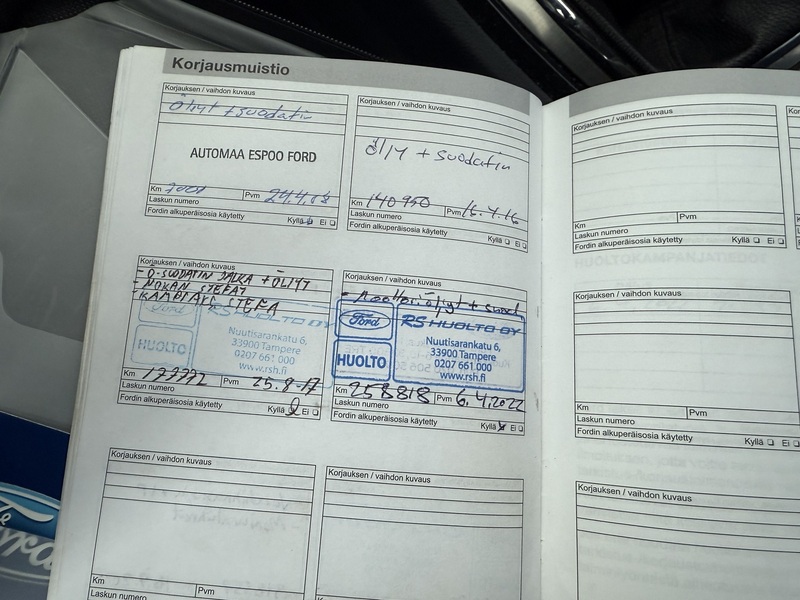 Korjausmuistio
Korjauksen / vaihdon kuvaus
Öljyt + suodatin
AUTOMAA ESPOO FORD
Km
Pvm 24.4.08
Laskun numero
Fordin alkuperäisosia käytetty
Kyllä Ei
Korjauksen / vaihdon kuvaus
Öljy + suodatin
Km 140950 Pvm 16.4.16
Laskun numero
Fordin alkuperäisosia käytetty
Kyllä Ei
Korjauksen / vaihdon kuvaus
- Ö-SUODATIN JALKA + ÖLJYT
- NOKAN STEFAT
- KAMPIAKS STEFA
Ford
HUOLTO
RS HUOLTO OY
Nuutisarankatu 6,
33900 Tampere
0207 661 000
www.rsh.fi
Km 177792 Pvm 25.8-17
Laskun numero
Fordin alkuperäisosia käytetty
Kyllä Ei
Korjauksen / vaihdon kuvaus
- Moottoriöljyt + suod
Ford
HUOLTO
RS HUOLTO OY
Nuutisarankatu 6,
33900 Tampere
0207 661 000
www.rsh.fi
Km 258818 Pvm 6.4.2022
Laskun numero
Fordin alkuperäisosia käytetty
Kyllä Ei
Korjauksen / vaihdon kuvaus
Km Pvm
Korjauksen / vaihdon kuvaus
Korjauksen / vaihdon kuvaus
Km Pvm
Laskun numero
Fordin alkuperäisosia käytetty
Kyllä Ei
Korjauksen / vaihdon kuvaus
Km Pvm
Laskun numero
Fordin alkuperäisosia käytetty
Kyllä Ei
Korjauksen / vaihdon kuvaus
Ford